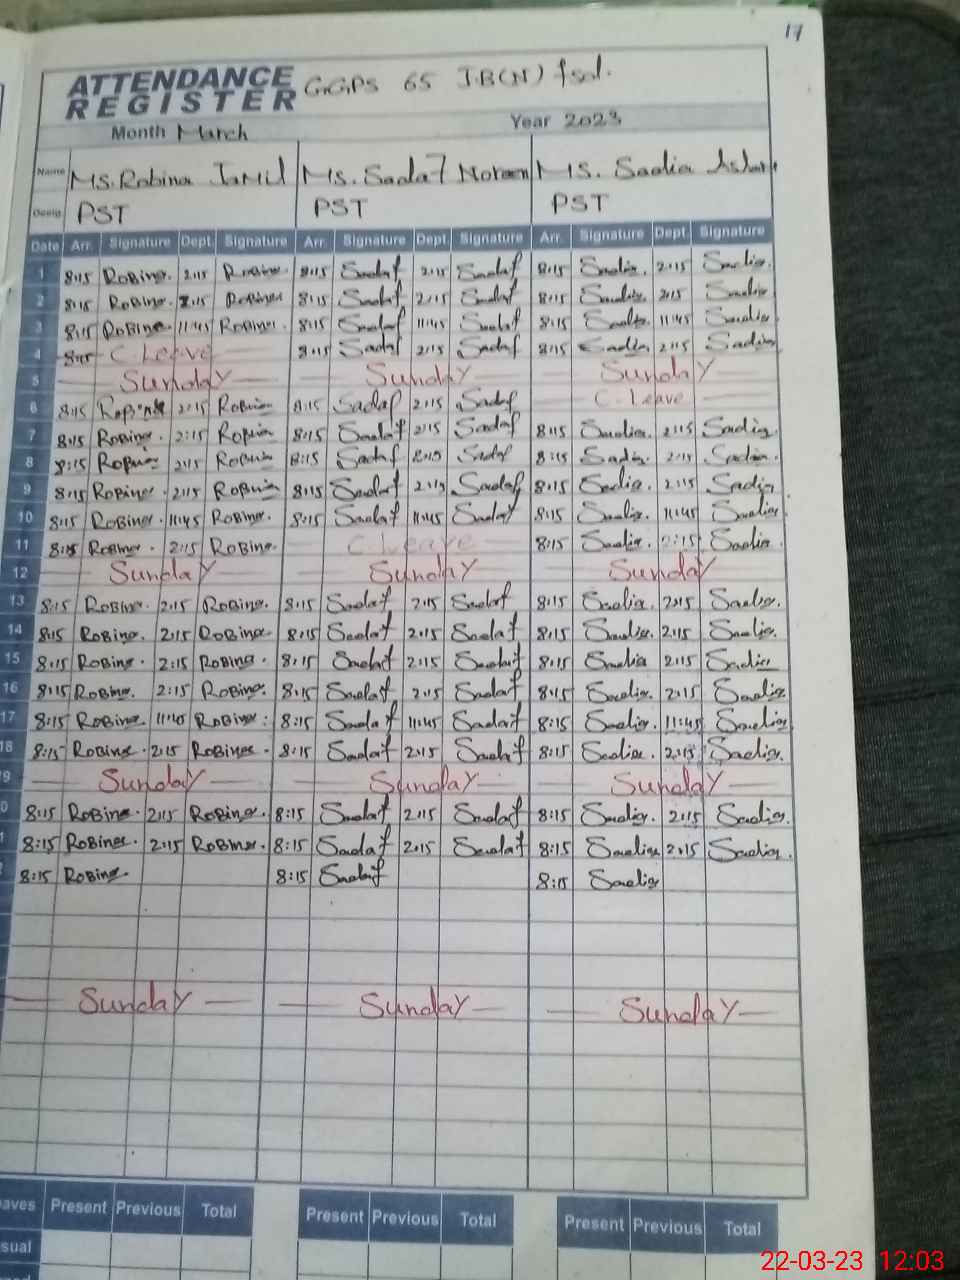 17
ATTENDANCE REGISTER G.G.P.S 65 J.B(N) fsd.
Month March Year 2023
Name Ms. Robina Jamil Ms. Sadaf Noreen Ms. Sadia
Desig. PST PST PST
Date Arr. Signature Dept. Signature Arr. Signature Dept. Signature Arr. Signature Dept. Signature
1 8:15 Robina. 2:15 Robina. 8:15 Sadaf 2:15 Sadaf 8:15 Sadia. 2:15 Sadia.
2 8:15 Robina. 2:15 Robina 8:15 Sadaf 2:15 Sadaf 8:15 Sadia. 2:15 Sadia
3 8:15 Robina. 11:45 Robina. 8:15 Sadaf 11:45 Sadaf 8:15 Sadia. 11:45 Sadia
4 8:15 C Leave 8:15 Sadaf 2:15 Sadaf 8:15 Sadia 2:15 Sadia
5 Sunday Sunday Sunday
6 8:15 Robina 2:15 Robina 8:15 Sadaf 2:15 Sadaf C. Leave
7 8:15 Robina. 2:15 Robina 8:15 Sadaf 2:15 Sadaf 8:15 Sadia. 2:15 Sadia
8 8:15 Robina 2:15 Robina 8:15 Sadaf Sadaf 8:15 Sadia. 2:15 Sadia.
9 8:15 Robina. 2:15 Robina 8:15 Sadaf 2:15 Sadaf 8:15 Sadia. 2:15 Sadia
10 8:15 Robina. 11:45 Robina. 8:15 Sadaf 11:45 Sadaf 8:15 Sadia. 11:45 Sadia
11 8:15 Robina. 2:15 Robina. C. Leave 8:15 Sadia. 2:15 Sadia.
12 Sunday Sunday Sunday
13 8:15 Robina. 2:15 Robina. 8:15 Sadaf 2:15 Sadaf 8:15 Sadia. 2:15 Sadia.
14 8:15 Robina. 2:15 Robina 8:15 Sadaf 2:15 Sadaf 8:15 Sadia. 2:15 Sadia.
15 8:15 Robina. 2:15 Robina. 8:15 Sadaf 2:15 Sadaf 8:15 Sadia 2:15 Sadia
16 8:15 Robina. 2:15 Robina. 8:15 Sadaf 2:15 Sadaf 8:15 Sadia. 2:15 Sadia
17 8:15 Robina 11:45 Robina. 8:15 Sadaf 11:45 Sadaf 8:15 Sadia. 11:45 Sadia
18 8:15 Robina. 2:15 Robina. 8:15 Sadaf 2:15 Sadaf 8:15 Sadia. 2:15 Sadia.
9 Sunday Sunday Sunday
0 8:15 Robina. 2:15 Robina. 8:15 Sadaf 2:15 Sadaf 8:15 Sadia. 2:15 Sadia.
1 8:15 Robina. 2:15 Robina. 8:15 Sadaf 2:15 Sadaf 8:15 Sadia 2:15 Sadia.
8:15 Robina 8:15 Sadaf 8:15 Sadia
Sunday Sunday Sunday
eaves Present Previous Total Present Previous Total Present Previous Total
sual
22-03-23 12:03